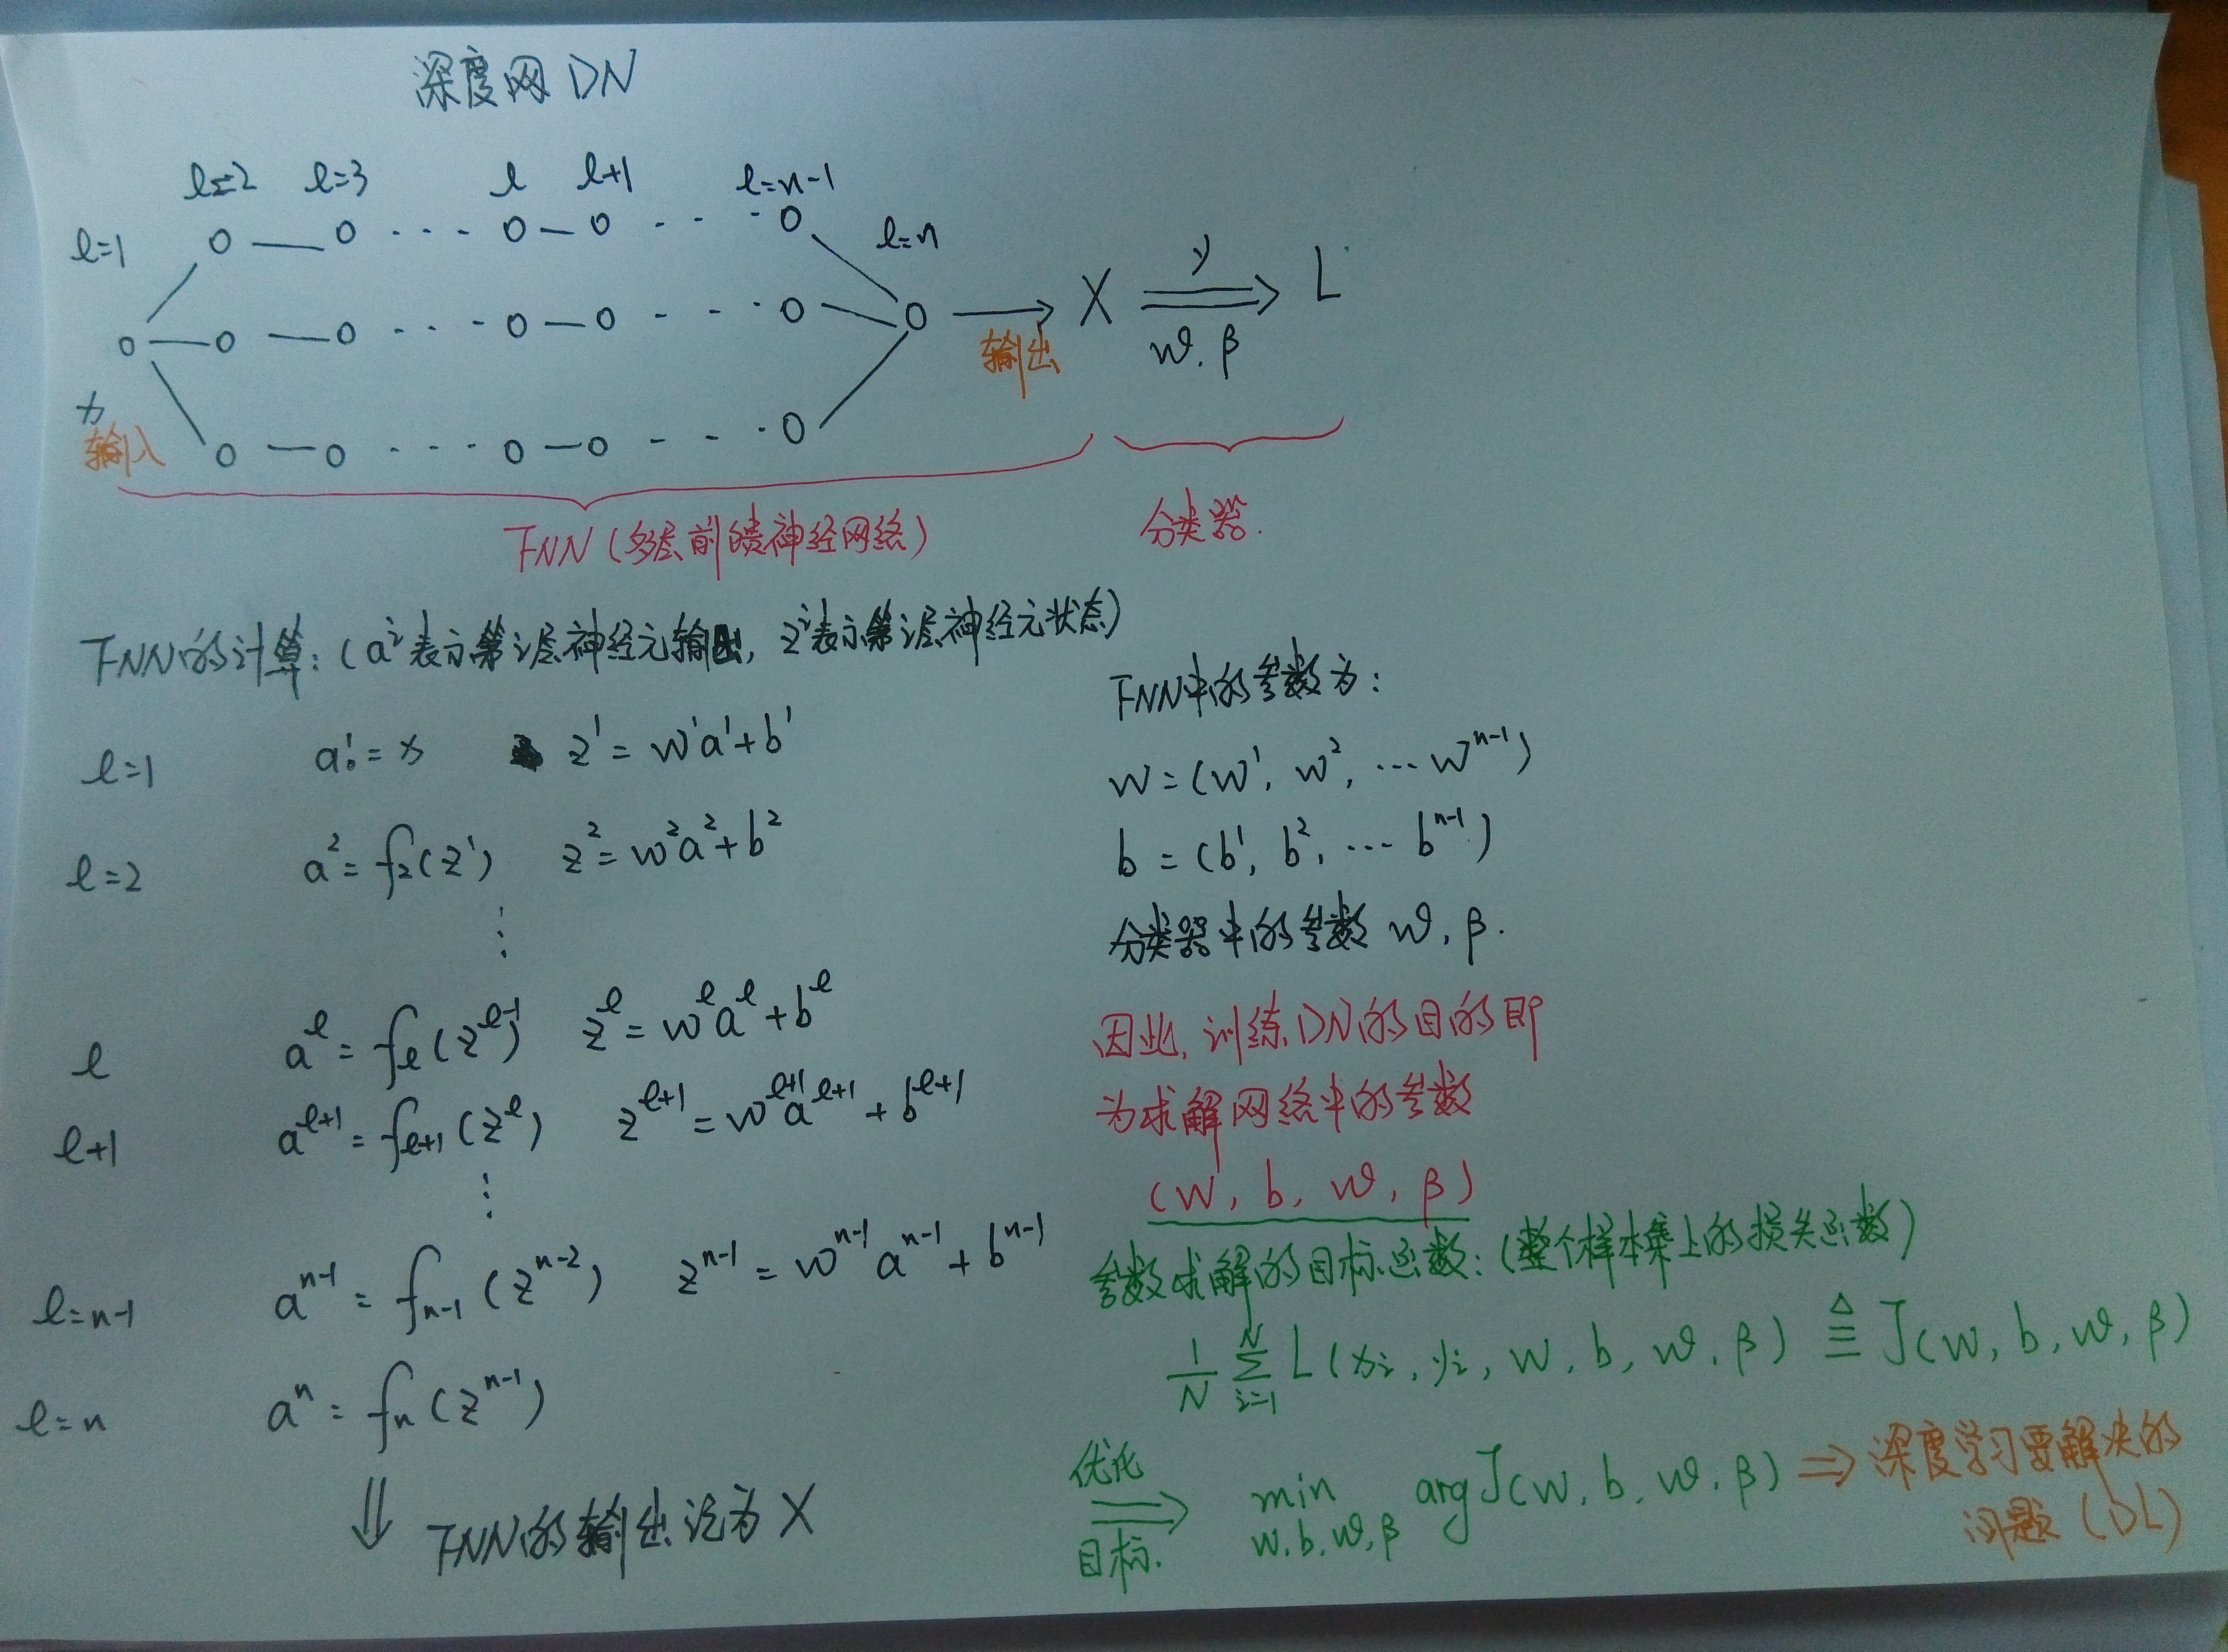 深度网 DN
l=2 l=3 l l+1 l=n-1
l=1 l=n
X y L
输出 w, β
x
输入
FNN (多层前馈神经网络) 分类器.
FNN的计算: (aⁱ表示第i层神经元输出, zⁱ表示第i层神经元状态)
l=1 a¹ = x z¹ = w¹a¹+b¹
l=2 a² = f₂(z¹) z² = w²a²+b²
⋮
l aˡ = fₗ(zˡ⁻¹) zˡ = wˡaˡ+bˡ
l+1 aˡ⁺¹ = fₗ₊₁(zˡ) zˡ⁺¹ = wˡ⁺¹aˡ⁺¹+bˡ⁺¹
⋮
l=n-1 aⁿ⁻¹ = fₙ₋₁(zⁿ⁻²) zⁿ⁻¹ = wⁿ⁻¹aⁿ⁻¹+bⁿ⁻¹
l=n aⁿ = fₙ(zⁿ⁻¹)
⇓ FNN的输出记为 X
FNN中的参数为:
W = (w¹, w², … wⁿ⁻¹)
b = (b¹, b², … bⁿ⁻¹)
分类器中的参数 w, β.
因此, 训练DN的目的即
为求解网络中的参数
(W, b, w, β)
参数求解的目标函数: (整个样本集上的损失函数)
1/N Σᵢ₌₁ᴺ L(xᵢ, yᵢ, W, b, w, β) ≜ J(W, b, w, β)
优化
目标.
⇒ min arg J(W, b, w, β) ⇒ 深度学习要解决的
W, b, w, β
问题 (DL)